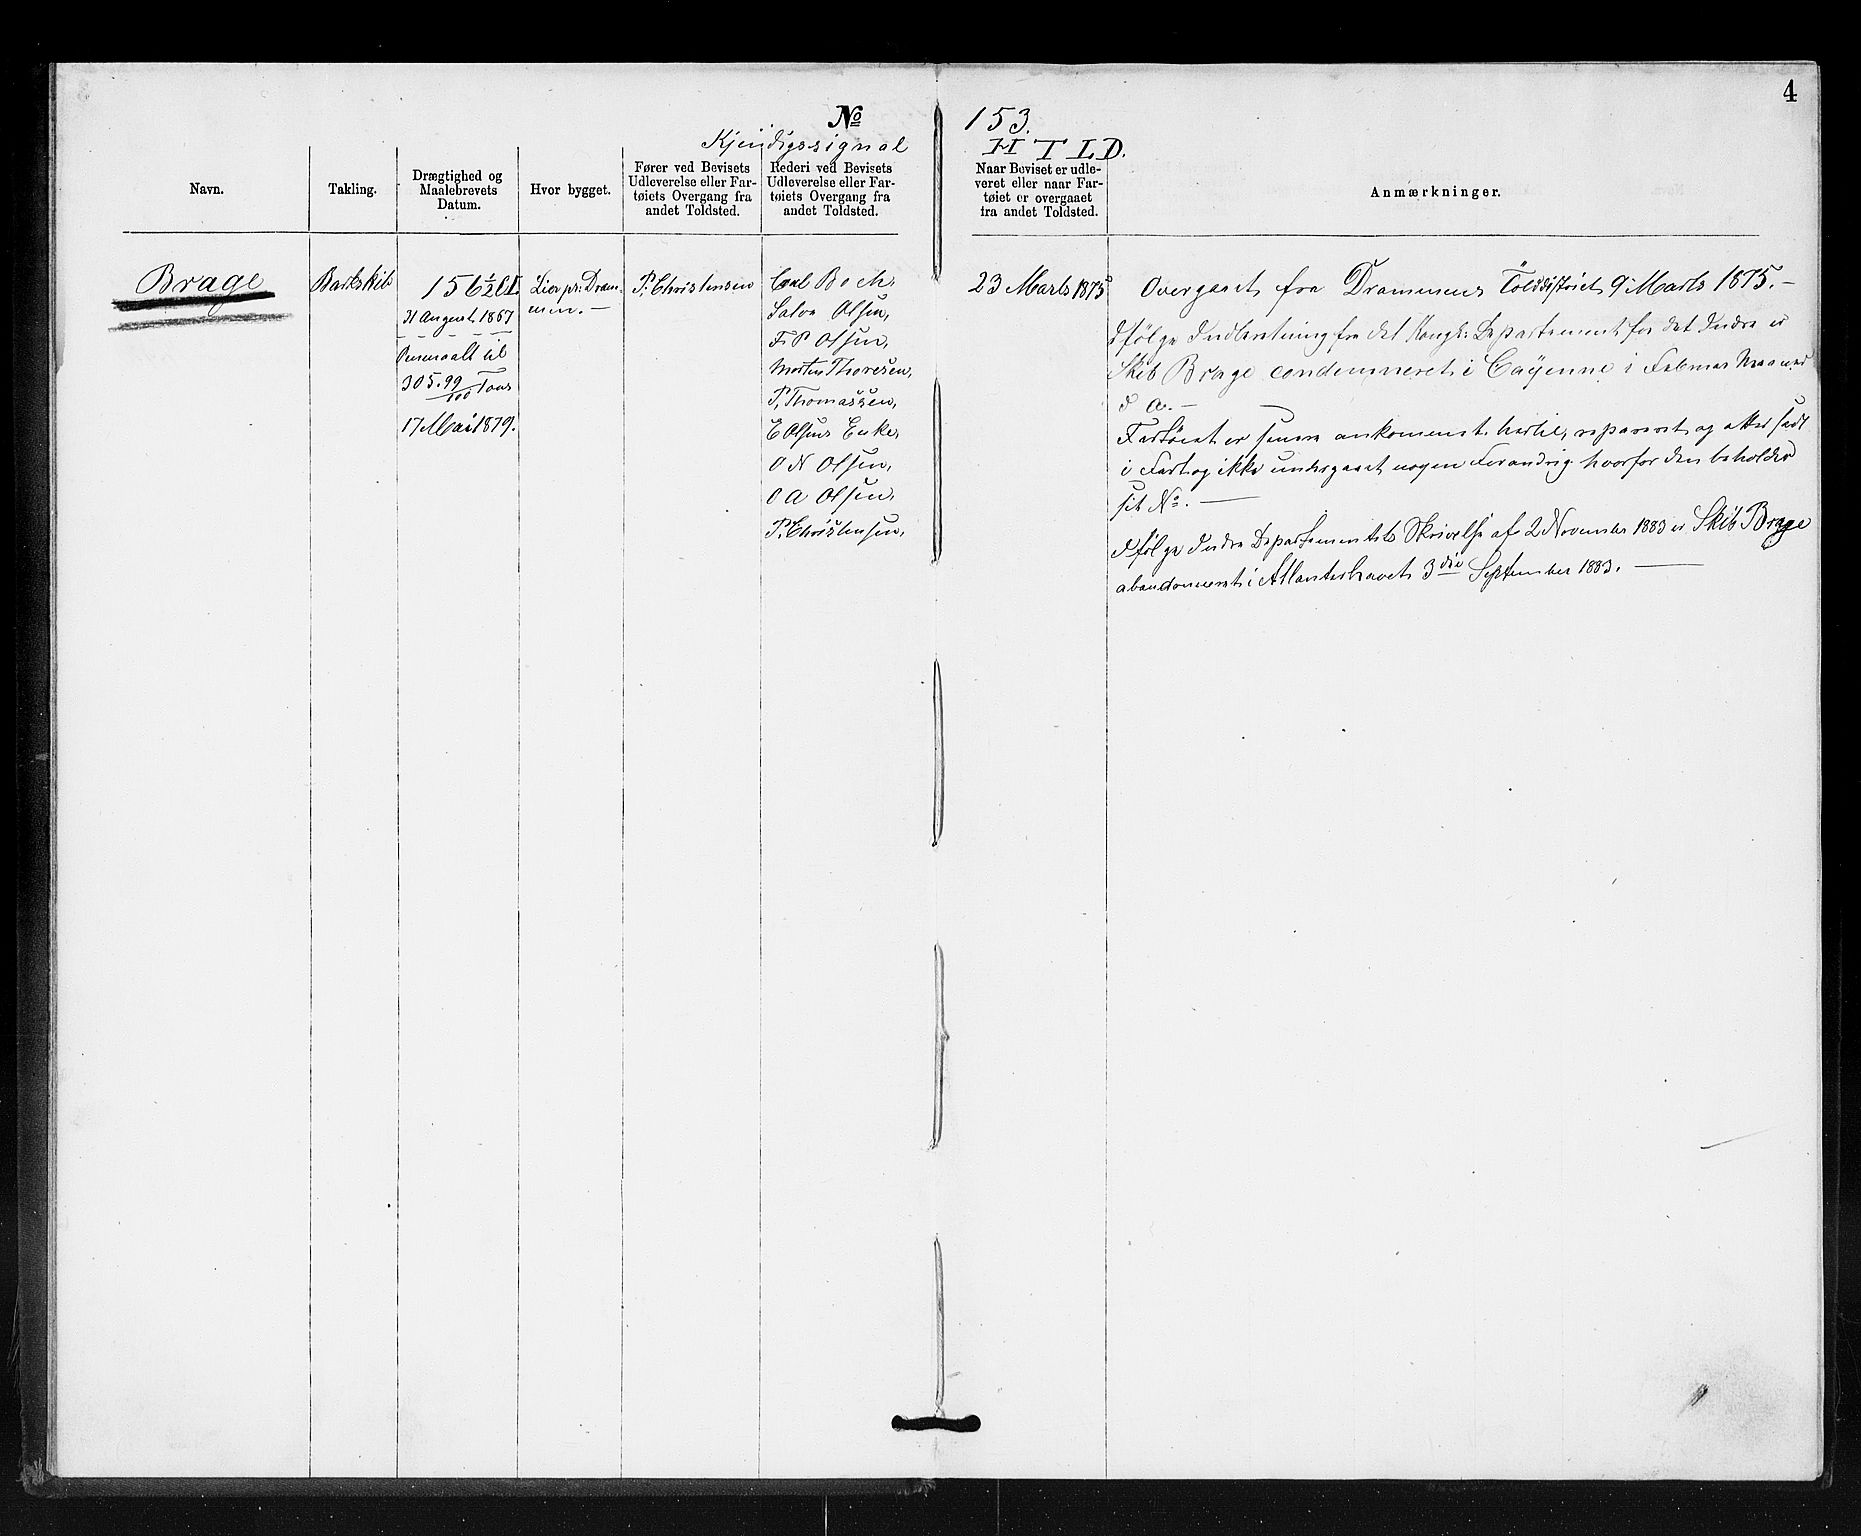 4
No 153.
Kjendigssignal H T L D.
Navn.
Takling.
Drægtighed og
Maalebrevets
Datum.
Hvor bygget.
Fører ved Bevisets
Udleverelse eller Far-
tøiets Overgang fra
andet Toldsted.
Rederi ved Bevisets
Udleverelse eller Far-
tøiets Overgang fra
andet Toldsted.
Naar Beviset er udle-
veret eller naar Far-
tøiet er overgaaet
fra andet Toldsted.
Anmærkninger.
Brage
Barkskib
156 1/2 Cl.
31 August 1867
Ommaalt til
305.99/100 Tons
17 Mai 1879.
Lier pr: Dram-
men.-
P. Christensen
Carl Boch,
Salve Olsen,
F P Olsen,
Morten Thoresen,
P. Thomassen,
E Olsens Enke,
O N Olsen,
O A Olsen,
P. Christensen,
23 Marts 1875
Overgaaet fra Drammens Tolddistrict 9 Marts 1875.-
Ifølge Indberetning fra det Kongl: Departement for det Indre er
Skib Brage condemneret i Cayenne i Februar Maaned
d A.-
Fartøiet er senere ankommet hertil, repareret og atter sadt
i Fart og ikke undergaaet nogen Forandrig hvorfor den beholder
sit No.-
Ifølge Indre Departementets Skrivelse af 2 November 1883 er Skib Brage
abandonneret i Atlanterhavet 3die September 1883.-